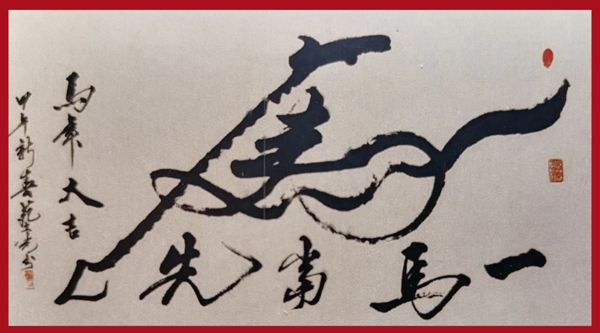 馬上
一馬當先
馬年大吉
甲午新春藝